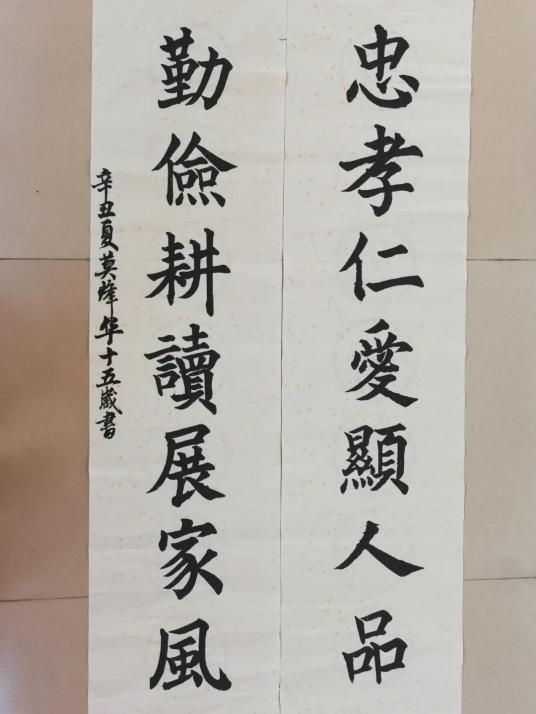 忠孝仁愛顯人品
勤儉耕讀展家風
辛丑夏莫鋒华十五歲書